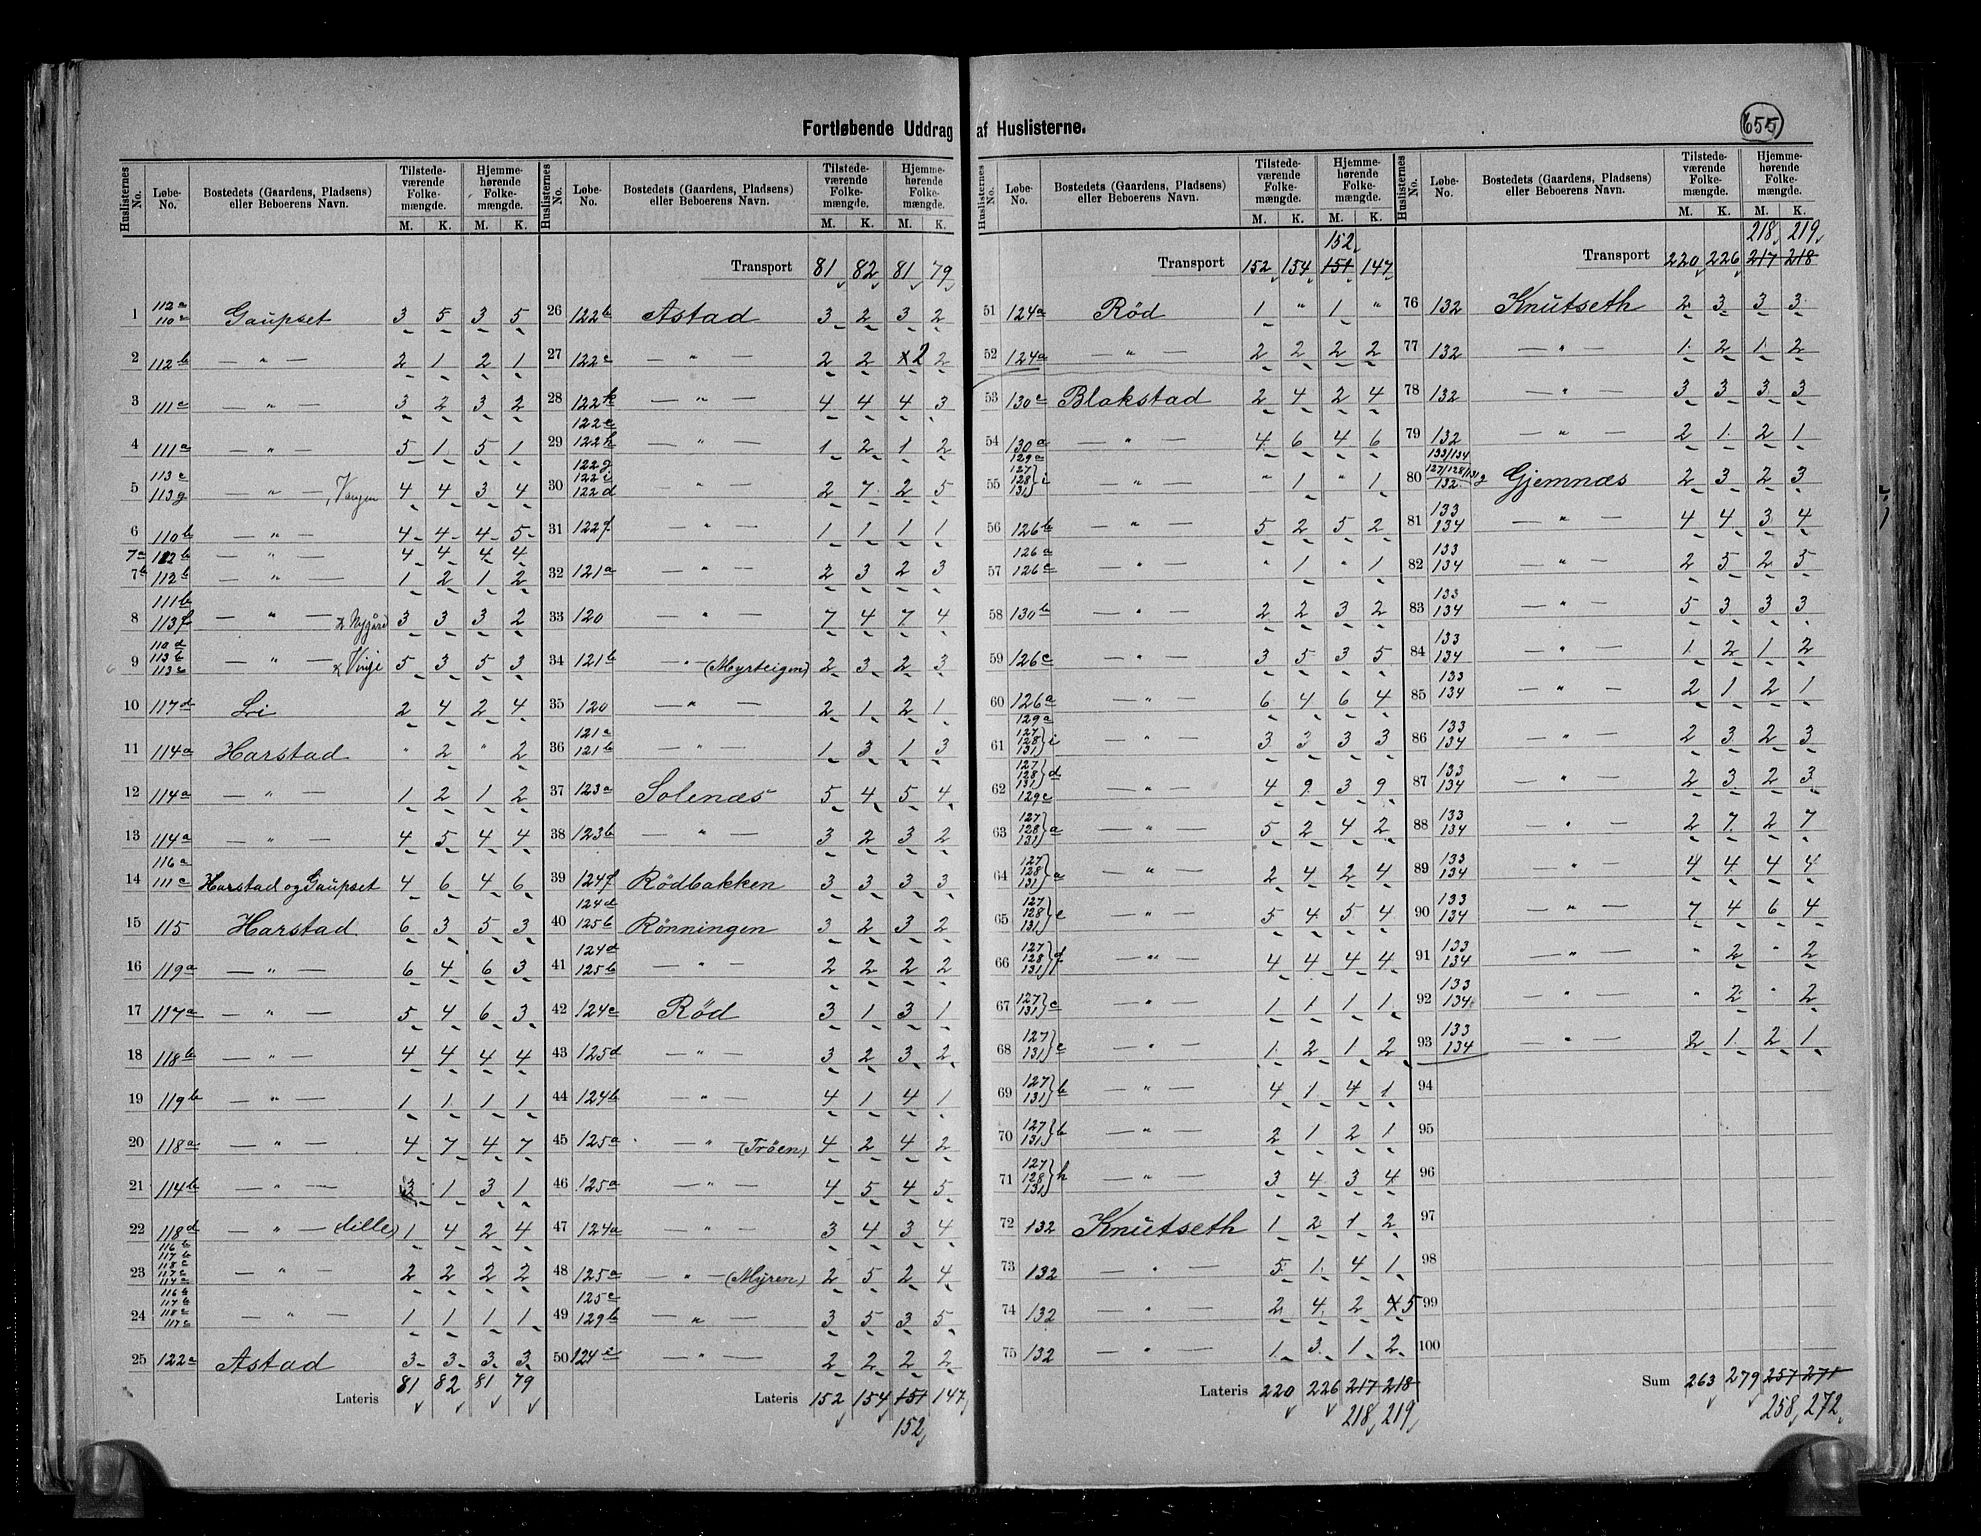 655
Fortløbende Uddrag af Huslisterne.
Huslisternes No. | Løbe-No. | Bostedets (Gaardens, Pladsen) eller Beboerens Navn. | Tilstedeværende Folkemængde. M. K. | Hjemmehørende Folkemængde. M. K.
1 | 112a 110c | Gaupset | 3 | 5 | 3 | 5
2 | 112b | — " — | 2 | 1 | 2 | 1
3 | 111c | — " — | 3 | 2 | 3 | 2
4 | 111a | — " — | 5 | 1 | 5 | 1
5 | 113c 113g | — " — | 4 | 4 | 3 | 4
6 | 110b | — " — | 4 | 4 | 4 | 5
7a | 112b | — " — | 4 | 4 | 4 | 4
7b | 112b | — " — | 1 | 2 | 1 | 2
8 | 111b 113f | — " — Nygård | 3 | 3 | 3 | 2
9 | 110d 113b 113c | — " — Vinje | 5 | 3 | 5 | 3
10 | 117d | Li | 2 | 4 | 2 | 4
11 | 114a | Harstad | " | 2 | " | 2
12 | 114a | — " — | 1 | 2 | 1 | 2
13 | 114a | — " — | 4 | 5 | 4 | 4
14 | 116a 111c | Harstad og Gaupset | 4 | 6 | 4 | 6
15 | 115 | Harstad | 6 | 3 | 5 | 3
16 | 119a | — " — | 6 | 4 | 6 | 3
17 | 117a | — " — | 5 | 4 | 6 | 3
18 | 118b | — " — | 4 | 4 | 4 | 4
19 | 119b | — " — | 1 | 1 | 1 | 1
20 | 118a | — " — | 4 | 7 | 4 | 7
21 | 114b | — " — | 3 | 1 | 3 | 1
22 | 118d | — " — (lille) | 1 | 4 | 2 | 4
23 | 116b 117b 118c 117c 114a | — " — | 2 | 2 | 2 | 2
24 | 116b 117b 118c 117c | — " — | 1 | 1 | 1 | 1
25 | 122a | Astad | 3 | 3 | 3 | 3
Lateris | 81 | 82 | 81 | 79
Huslisternes No. | Løbe-No. | Bostedets (Gaardens, Pladsen) eller Beboerens Navn. | Tilstedeværende Folkemængde. M. K. | Hjemmehørende Folkemængde. M. K.
Transport | 81 | 82 | 81 | 79
26 | 122b | Astad | 3 | 2 | 3 | 2
27 | 122c | — " — | 2 | 2 | 2 | 2
28 | 122k | — " — | 4 | 4 | 4 | 3
29 | 122e 122h | — " — | 1 | 2 | 1 | 2
30 | 122g 122i 122d | — " — | 2 | 7 | 2 | 5
31 | 122f | — " — | 1 | 1 | 1 | 1
32 | 121a | — " — | 2 | 3 | 2 | 3
33 | 120 | — " — | 7 | 4 | 7 | 4
34 | 121b | — " — (Myrteigen) | 2 | 3 | 2 | 3
35 | 120 | — " — | 2 | 1 | 2 | 1
36 | 121a 121b | — " — | 1 | 3 | 1 | 3
37 | 123a | Solenæs | 5 | 4 | 5 | 4
38 | 123b | — " — | 3 | 2 | 3 | 2
39 | 124f | Rödbakken | 3 | 3 | 3 | 3
40 | 124d 125b | Rönningen | 3 | 2 | 3 | 2
41 | 124d 125b | — " — | 2 | 2 | 2 | 2
42 | 124c | Röd | 3 | 1 | 3 | 1
43 | 125d | — " — | 3 | 2 | 3 | 2
44 | 124b | — " — | 4 | 1 | 4 | 1
45 | 125a | — " — (Tröen) | 4 | 2 | 4 | 2
46 | 125a | — " — | 4 | 5 | 4 | 5
47 | 124a | — " — | 3 | 4 | 3 | 4
48 | 125a | — " — (Myren) | 2 | 5 | 2 | 4
49 | 125c 129b | — " — | 3 | 5 | 3 | 5
50 | 124e | — " — | 2 | 2 | 2 | 2
Lateris | 152 | 154 | 151 | 147
152
Huslisternes No. | Løbe-No. | Bostedets (Gaardens, Pladsen) eller Beboerens Navn. | Tilstedeværende Folkemængde. M. K. | Hjemmehørende Folkemængde. M. K.
152
Transport | 152 | 154 | 151 | 147
51 | 124a | Röd | 1 | " | 1 | "
52 | 124a | — " — | 2 | 2 | 2 | 2
53 | 130c | Blakstad | 2 | 4 | 2 | 4
54 | 130a | — " — | 4 | 6 | 4 | 6
55 | 129a 127 128 131 } i | — " — | " | 1 | " | 1
56 | 126b | — " — | 5 | 2 | 5 | 2
57 | 126a 126c | — " — | " | 1 | " | 1
58 | 130b | — " — | 2 | 2 | 3 | 2
59 | 126c | — " — | 3 | 5 | 3 | 5
60 | 126a | — " — | 6 | 4 | 6 | 4
61 | 129a 127 128 131 } i | — " — | 3 | 3 | 3 | 3
62 | 127 128 131 } d 129c | — " — | 4 | 9 | 3 | 9
63 | 127 128 131 } a | — " — | 5 | 2 | 4 | 2
64 | 127 128 131 } a | — " — | 2 | 4 | 2 | 4
65 | 127 128 131 } e | — " — | 5 | 4 | 5 | 4
66 | 127 128 131 } f | — " — | 4 | 4 | 4 | 4
67 | 127 131 } c | — " — | 1 | 1 | 1 | 1
68 | 127 131 } c | — " — | 1 | 2 | 1 | 2
69 | 127 131 } b | — " — | 4 | 1 | 4 | 1
70 | 127 131 } b | — " — | 2 | 1 | 2 | 1
71 | 127 128 131 } h | — " — | 3 | 4 | 3 | 4
72 | 132 | Knutseth | 1 | 2 | 1 | 2
73 | 132 | — " — | 5 | 1 | 4 | 1
74 | 132 | — " — | 2 | 4 | 2 | 4 5
75 | 132 | — " — | 1 | 3 | 1 | 2
Lateris | 220 | 226 | 217 | 218
218 | 219
Huslisternes No. | Løbe-No. | Bostedets (Gaardens, Pladsen) eller Beboerens Navn. | Tilstedeværende Folkemængde. M. K. | Hjemmehørende Folkemængde. M. K.
218 | 219
Transport | 220 | 226 | 217 | 218
76 | 132 | Knutseth | 2 | 3 | 3 | 3
77 | 132 | — " — | 1 | 2 | 1 | 2
78 | 132 | — " — | 3 | 3 | 3 | 3
79 | 132 | — " — | 2 | 1 | 2 | 1
80 | 133/134 127/128/131 132 g | Gjemnæs | 2 | 3 | 2 | 3
81 | 133 134 | — " — | 4 | 4 | 3 | 4
82 | 133 134 | — " — | 2 | 5 | 2 | 5
83 | 133 134 | — " — | 5 | 3 | 3 | 3
84 | 133 134 | — " — | 1 | 2 | 1 | 2
85 | 133 134 | — " — | 2 | 1 | 2 | 1
86 | 133 134 | — " — | 2 | 3 | 2 | 3
87 | 133 134 | — " — | 2 | 3 | 2 | 3
88 | 133 134 | — " — | 2 | 7 | 2 | 7
89 | 133 134 | — " — | 4 | 4 | 4 | 4
90 | 133 134 | — " — | 7 | 4 | 6 | 4
91 | 133 134 | — " — | " | 2 | " | 2
92 | 133 134 | — " — | " | 2 | " | 2
93 | 133 134 | — " — | 2 | 1 | 2 | 1
94
95
96
97
98
99
100
Sum | 263 | 279 | 257 | 271
258 | 272